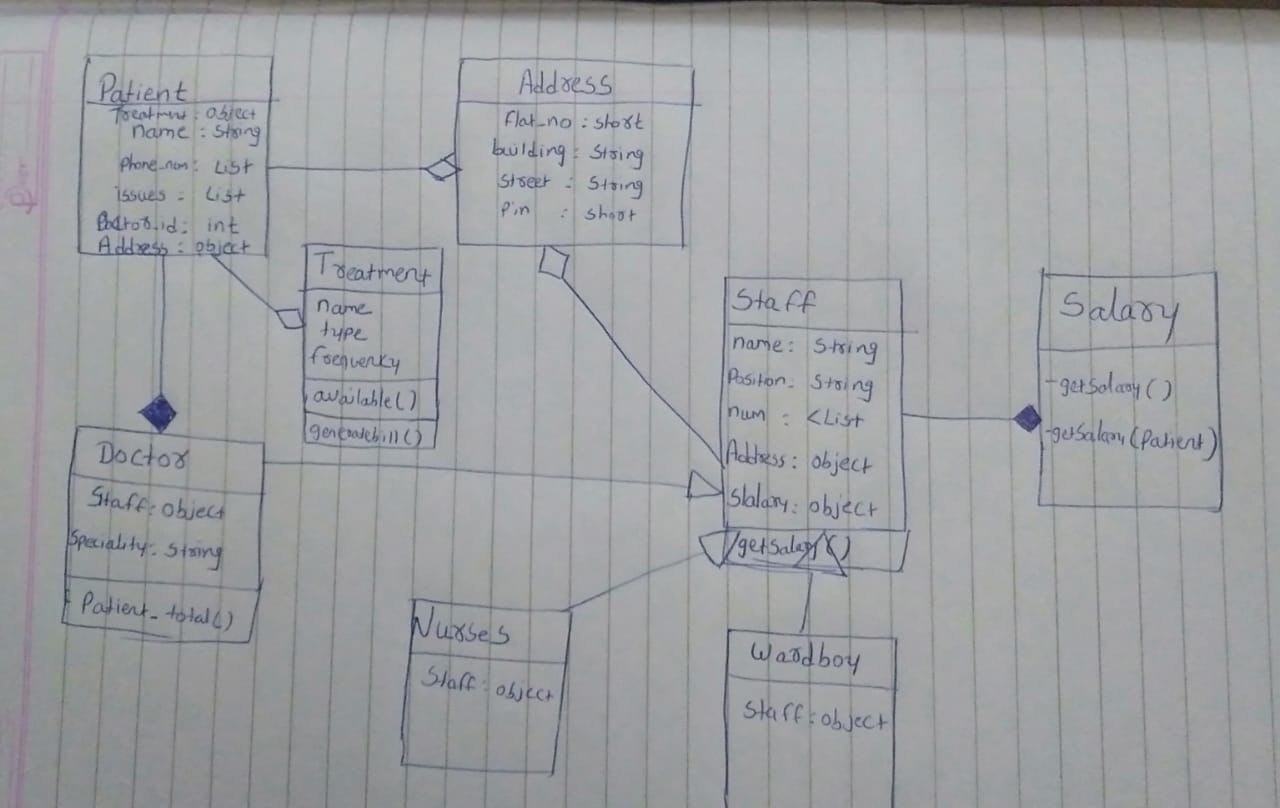 Patient
Treatmen : Object
name : String
Phone_num : List
issues : List
Doctor_id : int
Address : object
Address
flat_no : short
building : String
Street : String
Pin : short
Treatment
name
type
frequency
available()
generatebill()
Staff
name : String
Position : String
num : <List
Address : object
Slalary : object
getSalary()
Salary
-getSalary()
-getSalary(Patient)
Doctor
Staff : Object
Speciality : String
Patient_total()
Nurses
Staff : object
Wardboy
Staff : object